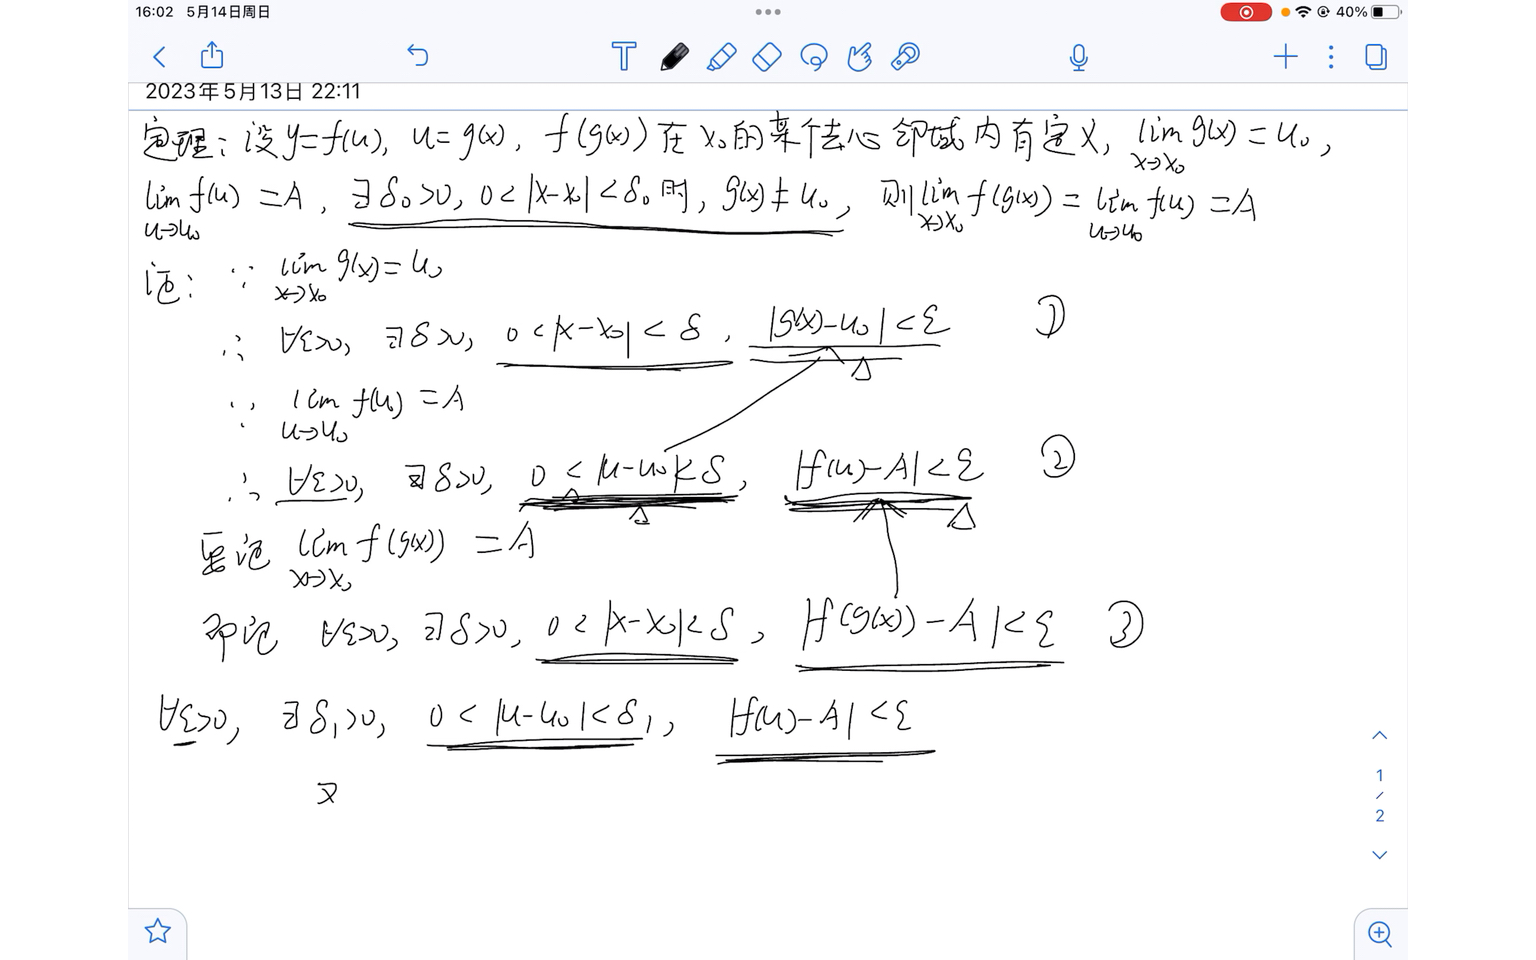 16:02 5月14日周日
40%
2023年5月13日 22:11
定理：设 y=f(u), u=g(x), f(g(x)) 在 x₀的某个去心邻域内有定义, lim g(x) = u₀,
x→x₀
lim f(u) = A, ∃δ₀>0, 0<|x-x₀|<δ₀时, g(x)≠u₀, 则 lim f(g(x)) = lim f(u) = A
u→u₀ x→x₀ u→u₀
证： ∵ lim g(x) = u₀
x→x₀
∴ ∀ε>0, ∃δ>0, 0<|x-x₀|<δ, |g(x)-u₀|<ε ①
∵ lim f(u) = A
u→u₀
∴ ∀ε>0, ∃δ>0, 0<|u-u₀|<δ, |f(u)-A|<ε ②
要证 lim f(g(x)) = A
x→x₀
即证 ∀ε>0, ∃δ>0, 0<|x-x₀|<δ, |f(g(x))-A|<ε ③
∀ε>0, ∃δ₁>0, 0<|u-u₀|<δ₁, |f(u)-A|<ε
又
1
/
2